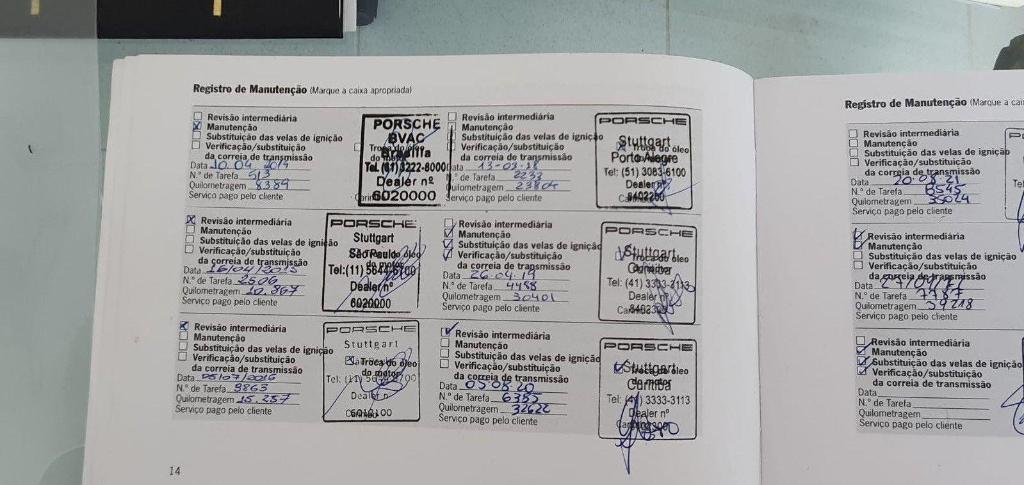 Registro de Manutenção (Marque a caixa apropriada)
Revisão intermediária
Manutenção
Substituição das velas de ignição
Verificação/substituição
da correia de transmissão
Data 10.04 2014
N.º de Tarefa 513
Quilometragem 8389
Serviço pago pelo cliente
PORSCHE
BVAC
Brasília
Tel. (61) 3222-8000
Dealer nº
6020000
Revisão intermediária
Manutenção
Substituição das velas de ignição
Verificação/substituição
da correia de transmissão
Data 16/04/2015
N.º de Tarefa 2506
Quilometragem 10.867
Serviço pago pelo cliente
PORSCHE
Stuttgart
São Paulo
Tel:(11) 5644-6700
Dealer nº
6020000
Revisão intermediária
Manutenção
Substituição das velas de ignição
Verificação/substituição
da correia de transmissão
Data 05/07/2016
N.º de Tarefa 9865
Quilometragem 15.257
Serviço pago pelo cliente
PORSCHE
Stuttgart
Troca do óleo
do motor
Dealer nº
Revisão intermediária
Manutenção
Substituição das velas de ignição
Verificação/substituição
da correia de transmissão
Data 13-03-18
N.º de Tarefa 2233
Quilometragem 23804
Serviço pago pelo cliente
PORSCHE
Stuttgart
Troca do óleo
Porto Alegre
Tel: (51) 3083-6100
Dealer nº
Revisão intermediária
Manutenção
Substituição das velas de ignição
Verificação/substituição
da correia de transmissão
Data 26.04.19
N.º de Tarefa 4488
Quilometragem 30401
Serviço pago pelo cliente
PORSCHE
Stuttgart
Troca do óleo
Curitiba
Tel: (41) 3333-3113
Dealer nº
Revisão intermediária
Manutenção
Substituição das velas de ignição
Verificação/substituição
da correia de transmissão
Data 05.08.20
N.º de Tarefa 6385
Quilometragem 32622
Serviço pago pelo cliente
PORSCHE
Stuttgart
Troca do óleo
do motor
Curitiba
Tel: (41) 3333-3113
Dealer nº
14
Registro de Manutenção (Marque a
Revisão intermediária
Manutenção
Substituição das velas de ignição
Verificação/substituição
da correia de transmissão
Data 20.08.21
N.º de Tarefa 8545
Quilometragem 35024
Serviço pago pelo cliente
Revisão intermediária
Manutenção
Substituição das velas de ignição
Verificação/substituição
da correia de transmissão
Data
N.º de Tarefa 7787
Quilometragem 39218
Serviço pago pelo cliente
Revisão intermediária
Manutenção
Substituição das velas de ignição
Verificação/substituição
da correia de transmissão
Data
N.º de Tarefa
Quilometragem
Serviço pago pelo cliente